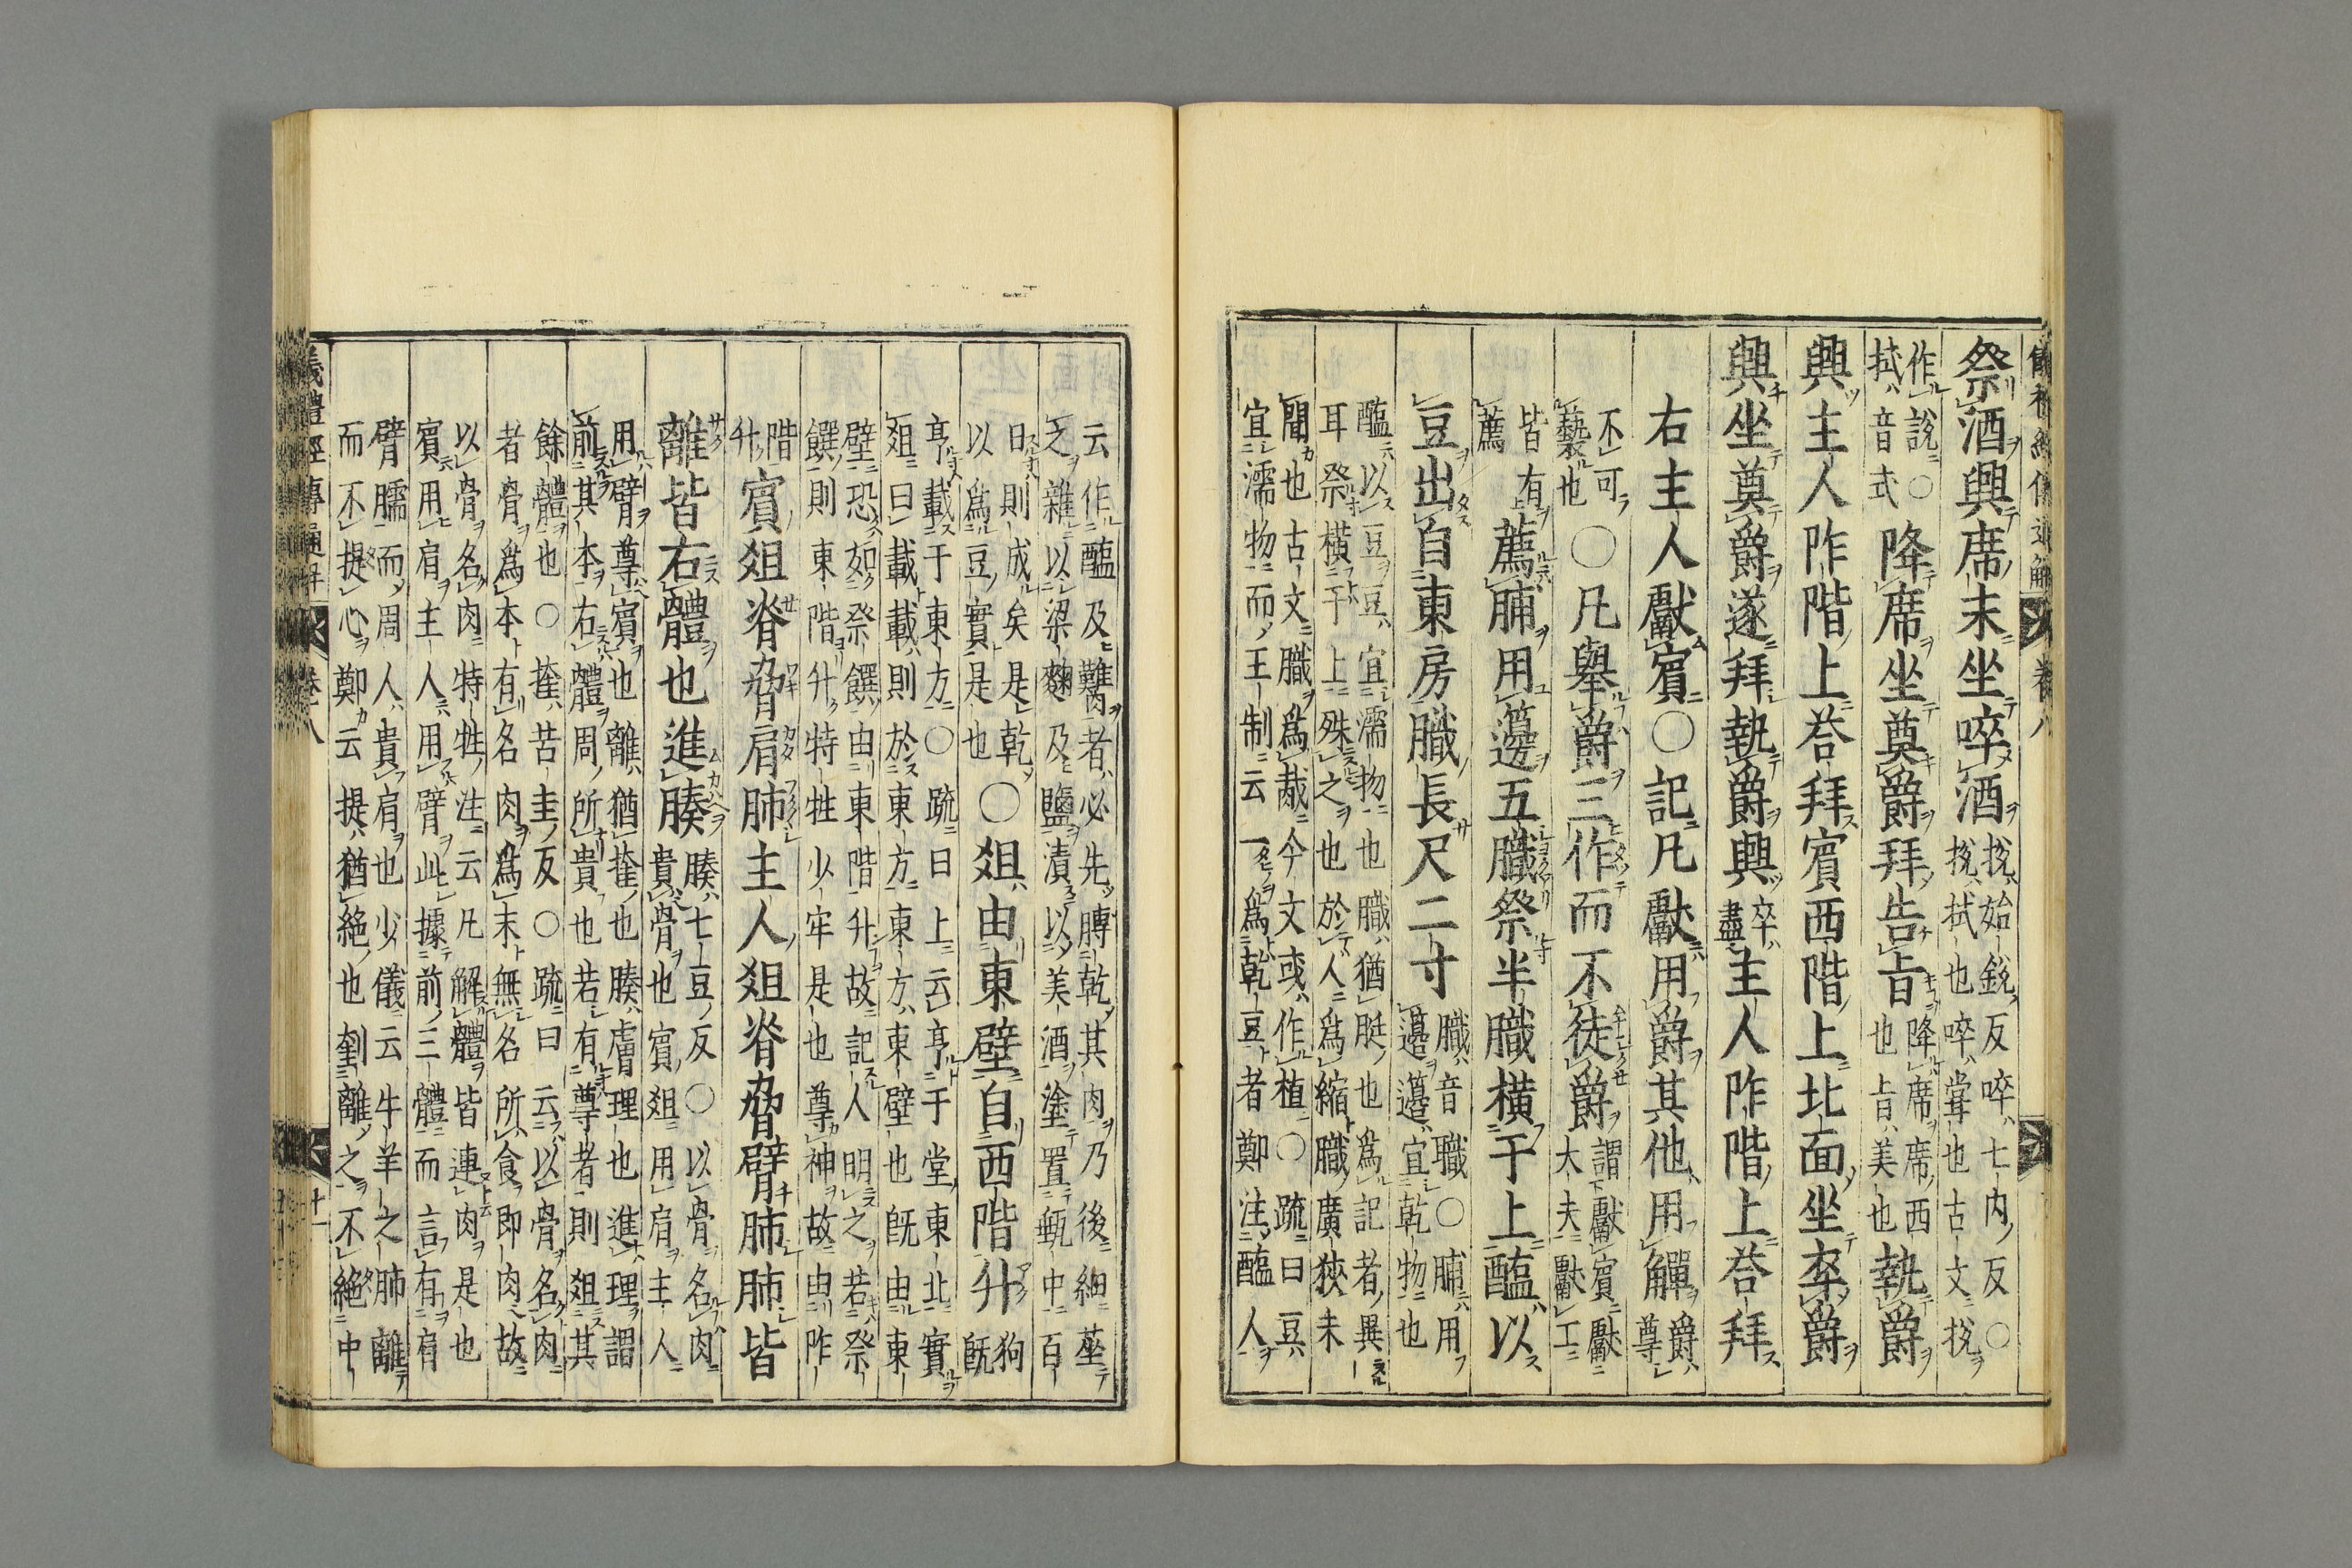 祭酒興席末坐啐酒 挩始銳反啐七内反〇挩拭也啐嘗也古文挩
作說〇拭音式 降席坐奠爵拜告旨 降席席西也旨美也 執爵
興主人阼階上荅拜賓西階上北面坐卒爵
興坐奠爵遂拜執爵興 卒盡 主人阼階上荅拜
右主人獻賓〇記凡獻用爵其他用觶 爵尊
不可褻也 〇凡舉爵三作而不徒爵 謂獻賓獻大夫獻工
皆有薦 薦脯用籩五膱祭半膱橫于上醢以
豆出自東房膱長尺二寸 膱音職〇脯用籩籩宜乾物也
醢以豆豆宜濡物也膱猶脡也爲記者異
耳祭橫于上殊之也於人爲縮膱廣狹未
聞也古文膱爲胾今文或作植〇疏曰豆
宜濡物而王制云一爲乾豆者鄭注醢人
云作醢及臡者必先膊乾其肉乃後細莝
之雜以粱麴及鹽漬以美酒塗置甀中百
日則成矣是乾
以爲豆實是也 〇俎由東壁自西階升 狗既
亨載于東方〇疏曰上云亨于堂東北實
俎曰載載則於東方東方東壁也旣由東
壁恐如祭饌由東階升故記人明之若祭
饌則東階升特牲少牢是也尊神故由阼
階升 賓俎脊脅肩肺主人俎脊脅臂肺肺皆
離皆右體也進腠 腠七豆反〇以骨名肉貴骨也賓俎用肩主人
用臂尊賓也離猶㨒也腠膚理也進理謂
前其本右體周所貴也若有尊者則俎其
餘體也〇㨒苦圭反〇疏曰云以骨名肉
者骨爲本有名肉爲末無名所食即肉故
以骨名肉特牲注云凡解體皆連肉是也
賓用肩主人用臂此據前三體而言有肩
臂臑而周人貴肩也少儀云牛羊之肺離
而不提心鄭云提猶絶也刲離之不絶中
儀禮經傳通解 卷八